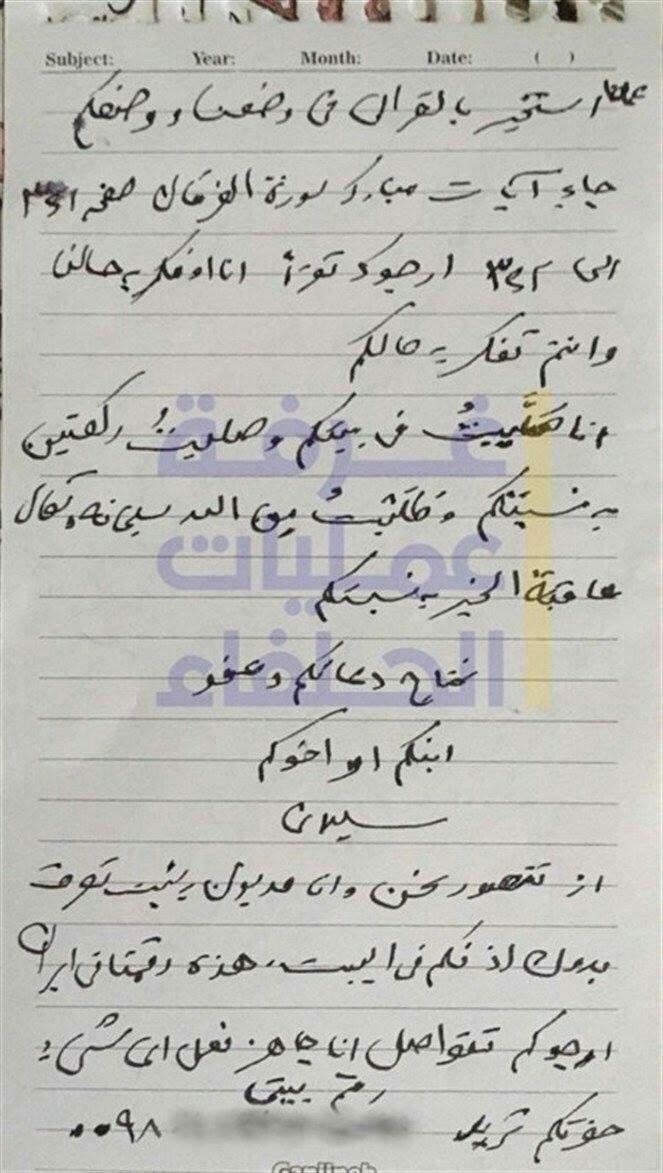 Subject: Year: Month: Date: ( )
استخير بالقرآن في وضعنا ووضعكم
جاء آيات مبارك سورة الفرقان صفحه ٣٦١
الى ٣٦٢ ارجوك تقرأ انا اوفكر به حالنا
وانتم تفكر به حالكم
انا صَلَّيتُ في بيتكم وصليتُ ركعتين
به نسبتكم وطَلَبتُ مِن الله سبحانه وتعال
عاقبة الخير به نسبتكم
نحتاج دعائكم وعفو
ابنكم او اخوكم
سليماني
از تقصور نحن وانا مديون به
بدون اذنكم في البيت، هذه رقمنا في ايران
ارجوكم تتواصل انا جاهز نعل اى شىء
رقم بيتي
حضرتكم تريد ٠٠٩٨
غرفة
عمليات
الحلفاء